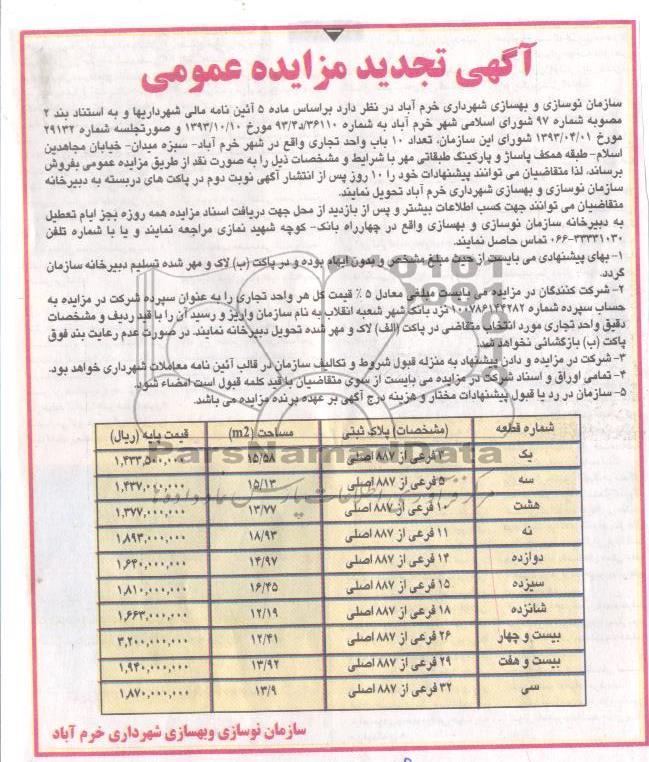 آگهی تجدید مزایده عمومی
سازمان نوسازی و بهسازی شهرداری خرم آباد در نظر دارد براساس ماده ۵ آئین نامه مالی شهرداریها و به استناد بند ۲
مصوبه شماره ۹۷ شورای اسلامی شهر خرم آباد به شماره ۹۳/۳۶۱۱۰/د مورخ ۱۳۹۳/۱۰/۱۰ و صورتجلسه شماره ۲۹۱۳۲
مورخ ۱۳۹۳/۰۴/۰۱ شورای این سازمان، تعداد ۱۰ باب واحد تجاری واقع در شهر خرم آباد- سبزه میدان- خیابان مجاهدین
اسلام-طبقه همکف پاساژ و پارکینگ طبقاتی مهر با شرایط و مشخصات ذیل را به صورت نقد از طریق مزایده عمومی بفروش
برساند، لذا متقاضیان می توانند پیشنهادات خود را ۱۰ روز پس از انتشار آگهی نوبت دوم در پاکت های دربسته به دبیرخانه
سازمان نوسازی و بهسازی شهرداری خرم آباد تحویل نمایند.
متقاضیان می توانند جهت کسب اطلاعات بیشتر و پس از بازدید از محل جهت دریافت اسناد مزایده همه روزه بجز ایام تعطیل
به دبیرخانه سازمان نوسازی و بهسازی واقع در چهارراه بانک- کوچه شهید نمازی مراجعه نمایند و یا با شماره تلفن
۰۶۶-۳۳۳۳۱۰۳۰ تماس حاصل نمایند.
۱- بهای پیشنهادی می بایست از حیث مبلغ مشخص و بدون ابهام بوده و در پاکت (ب) لاک و مهر شده تسلیم دبیرخانه سازمان
گردد.
۲- شرکت کنندگان در مزایده می بایست مبلغی معادل ۵ ٪ قیمت کل هر واحد تجاری را به عنوان سپرده شرکت در مزایده به
حساب سپرده شماره ۱۰۰۷۸۶۱۳۴۲۸۲ نزد بانک شهر شعبه انقلاب به نام سازمان واریز و رسید آن را با قید ردیف و مشخصات
دقیق واحد تجاری مورد انتخاب متقاضی در پاکت (الف) لاک و مهر شده تحویل دبیرخانه نمایند. در صورت عدم رعایت بند فوق
پاکت (ب) بازگشائی نخواهد شد.
۳- شرکت در مزایده و دادن پیشنهاد به منزله قبول شروط و تکالیف سازمان در قالب آئین نامه معاملات شهرداری خواهد بود.
۴- تمامی اوراق و اسناد شرکت در مزایده می بایست از سوی متقاضیان با قید کلمه قبول است امضاء شود.
۵- سازمان در رد یا قبول پیشنهادات مختار و هزینه درج آگهی بر عهده برنده مزایده می باشد.
شماره قطعه (مشخصات) پلاک ثبتی مساحت (m2) قیمت پایه (ریال)
یک ۳ فرعی از ۸۸۷ اصلی ۱۵/۵۸ ۱,۴۳۳,۵۰۰,۰۰۰
سه ۵ فرعی از ۸۸۷ اصلی ۱۵/۱۳ ۱,۴۳۷,۰۰۰,۰۰۰
هشت ۱۰ فرعی از ۸۸۷ اصلی ۱۳/۷۷ ۱,۳۷۷,۰۰۰,۰۰۰
نه ۱۱ فرعی از ۸۸۷ اصلی ۱۸/۹۳ ۱,۸۹۳,۰۰۰,۰۰۰
دوازده ۱۴ فرعی از ۸۸۷ اصلی ۱۴/۹۷ ۱,۶۴۰,۰۰۰,۰۰۰
سیزده ۱۵ فرعی از ۸۸۷ اصلی ۱۶/۴۵ ۱,۸۱۰,۰۰۰,۰۰۰
شانزده ۱۸ فرعی از ۸۸۷ اصلی ۱۲/۱۹ ۱,۶۶۳,۰۰۰,۰۰۰
بیست و چهار ۲۶ فرعی از ۸۸۷ اصلی ۱۲/۴۱ ۳,۲۰۰,۰۰۰,۰۰۰
بیست و هفت ۲۹ فرعی از ۸۸۷ اصلی ۱۳/۹۲ ۱,۹۴۰,۰۰۰,۰۰۰
سی ۳۲ فرعی از ۸۸۷ اصلی ۱۳/۹ ۱,۸۷۰,۰۰۰,۰۰۰
ParsNamadData
سازمان نوسازی وبهسازی شهرداری خرم آباد